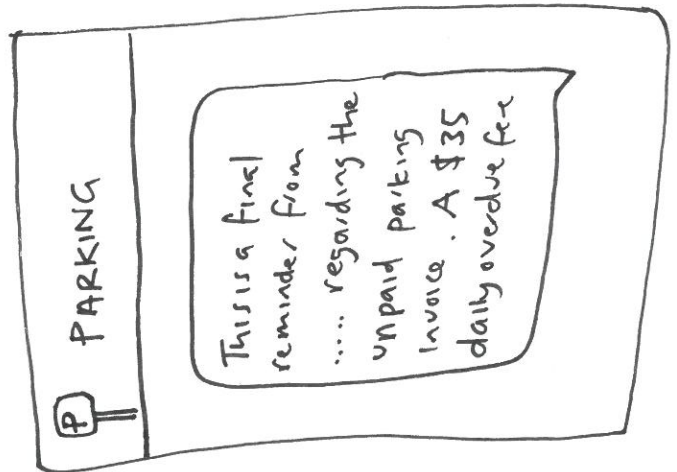 P PARKING
This is a final
reminder from
..... regarding the
unpaid parking
invoice. A $35
daily overdue fee